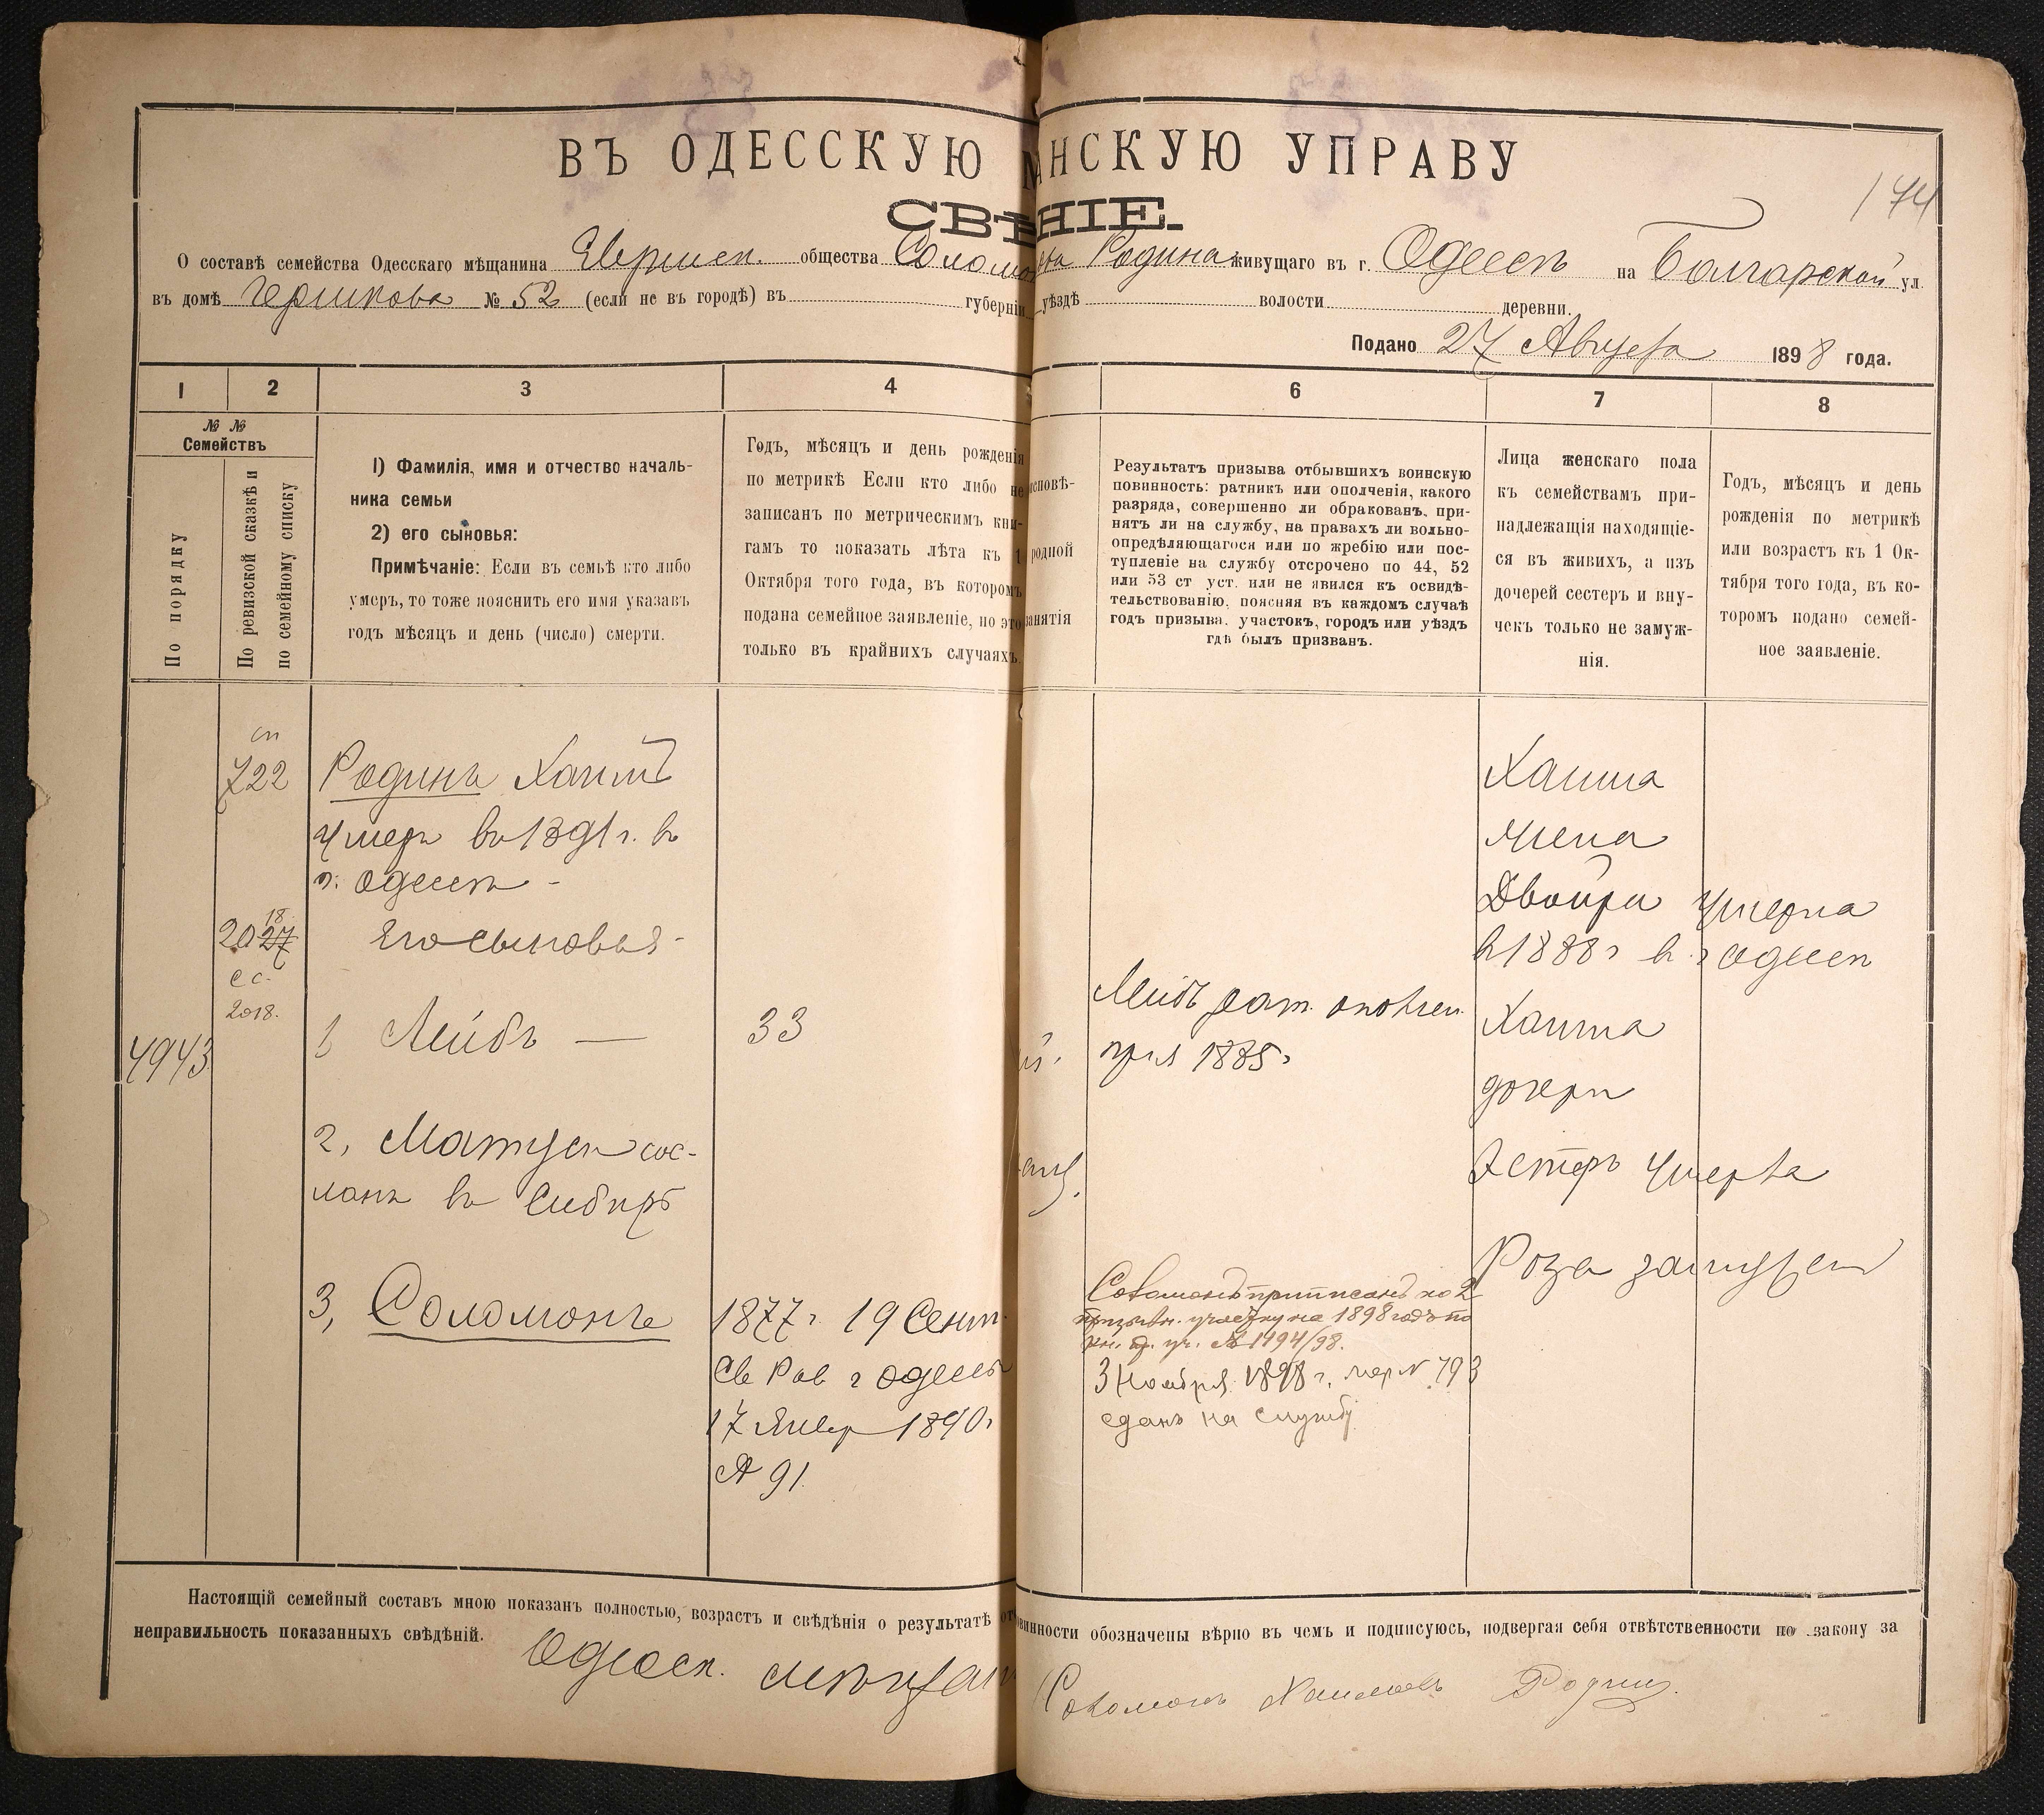 ВЪ ОДЕССКУЮ НСКУЮ УПРАВУ
144
СВѢ НІЕ.
О составѣ семейства Одесскаго мѣщанина Еврейск. общества Соломона Родина живущаго въ г. Одессѣ на Болгарской ул.
въ домѣ Гершкова № 52 (если не въ городѣ) въ губерніи уѣздѣ волости деревни.
Подано 27 Августа 1898 года.
1 2 3 4 6 7 8
№ №
Семействъ
По порядку
По ревизской сказкѣ и
по семейному списку
1) Фамилія, имя и отчество началь-
ника семьи
2) его сыновья:
Примѣчаніе: Если въ семьѣ кто либо
умеръ, то тоже пояснить его имя указавъ
годъ мѣсяцъ и день (число) смерти.
Годъ, мѣсяцъ и день рожденія
по метрикѣ Если кто либо не
записанъ по метрическимъ кни-
гамъ то показать лѣта къ 1
Октября того года, въ которомъ
подана семейное заявленіе, но это
только въ крайнихъ случаяхъ.
исповѣ-
родной
занятія
Результатъ призыва отбывшихъ воинскую
повинность: ратникъ или ополченія, какого
разряда, совершенно ли обракованъ, при-
нятъ ли на службу, на правахъ ли вольно-
опредѣляющагося или по жребію или пос-
тупленіе на службу отсрочено по 44, 52
или 53 ст уст. или не явился къ освидѣ-
тельствованію, поясняя въ каждомъ случаѣ
годъ призыва, участокъ, городъ или уѣздъ
гдѣ былъ призванъ.
Лица женскаго пола
къ семействамъ при-
надлежащія находящіе-
ся въ живихъ, а изъ
дочерей сестеръ и вну-
чекъ только не замуж-
нія.
Годъ, мѣсяцъ и день
рожденія по метрикѣ
или возрастъ къ 1 Ок-
тября того года, въ ко-
торомъ подано семей-
ное заявленіе.
сп
722
18
2027
сс.
2018.
4943
Родинъ Хаимъ
умеръ въ 1891 г. въ
г. Одессѣ -
Его сыновья -
1 Лейбъ —
2, Матусъ сос-
ланъ въ Сибирь
3, Соломонъ
33
1877 г. 19 Сент.
Св Рав г Одессы
17 Январ 1890 г
№ 91
Лейбъ рат. ополчен.
1885 г
Соломонъ приписанъ ко 2
призывн. участку на 1898 годъ по
№ 1494/98.
3 Ноября 1898 г. № 793
сданъ на службу
Хаима
жена
Двойра умерла
в 1888 г в г Одессѣ
Хаима
дочери
Эстеръ умерла
Роза замужем
Настоящій семейный составъ мною показанъ полностью, возрастъ и свѣдѣнія о результатѣ от винности обозначены вѣрно въ чемъ и подписуюсь, подвергая себя отвѣтственности по закону за
неправильность показанныхъ свѣдѣній.
Одесск. мѣщан Соломонъ Хаимовъ Родин.